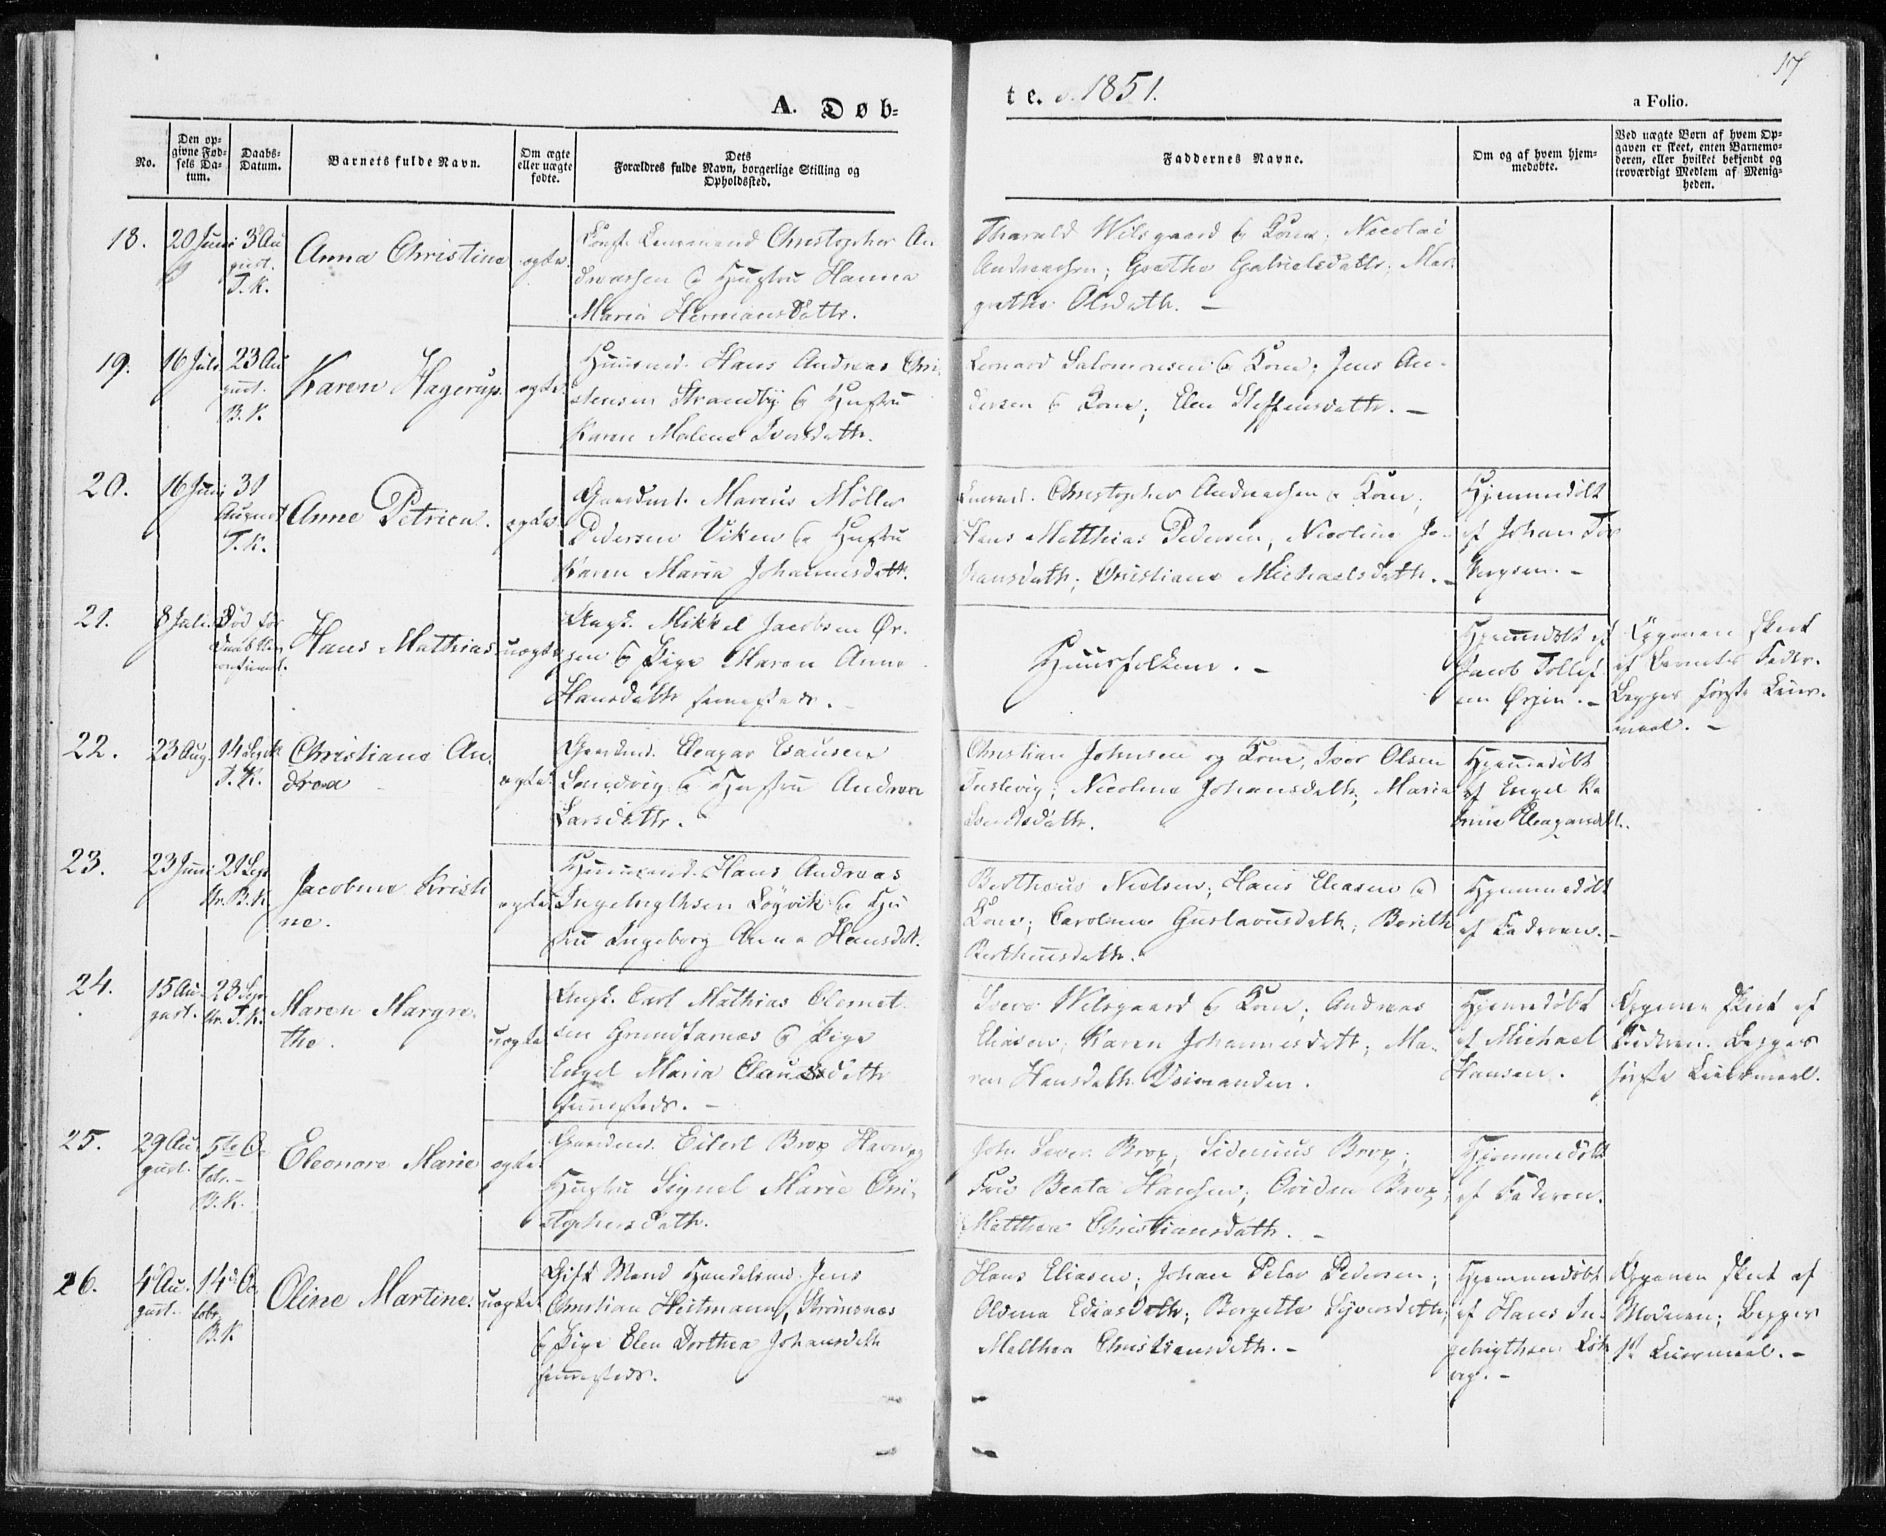 17
A. Døb-
te. 1851.
a Folio.
No.
Den op-
givne Fød-
sels Da-
tum.
Daabs-
Datum.
Barnets fulde Navn.
Om ægte
eller uægte
fødte.
Dets
Forældres fulde Navn, borgerlige Stilling og
Opholdssted.
Faddernes Navne.
Om og af hvem hjem-
medøbte.
Ved uægte Børn af hvem Op-
gaven er skeet, enten Barnemo-
deren, eller hvilket bekjendt og
troværdigt Medlem af Menig-
heden.
18.
20 Juni
3 Au
gust.
T. K.
Anna Christina
ægte.
Christopher An
dreassen & Hustru Hanna
Maria Hermansdattr.
Tharald Wilsgaard & Kone; Nicolai
Andreassen; Grethe Gabrielsdattr; Mar-
grethe Olsdattr. –
19.
16 Juli
23 Au
gust.
B. K.
Karen Hagerup.
ægte.
Huusmd. Hans Andreas Chri-
stensen Strandby & Hustru
Karen Malene Iversdattr.
Leonard Salomonsen & Kone; Jens An-
dersen & Kone; Elen Steffensdattr. –
20.
16 Juni
31
August
T. K.
Anne Petrica.
ægte
Gaardmd. Marcus Møller
Pedersen Viken & Hustru
Karen Maria Johannesdattr.
Christopher Andreassen & Kone;
Hans Matthias Pedersen, Nicoline Jo-
hansdattr; Christiane Michaelsdattr. –
Hjemmedøbt
af Johan Tor
bergsen. –
21.
8 Juli.
Død før
Daab
confirmt.
Hans Mathias
uægte
Ungk. Mikkel Jacobsen Ør-
gen & Pige Maren Anne
Hansdattr sammesteds. –
Huusfolkene. –
Hjemmedøbt af
Jacob Tollef
sen Ørgen. –
Opgaven skeet
af Barnets Fader.
Begges første Leier-
maal. –
22.
23 Aug.
14 Septb
T. K.
Christiane An-
drea
ægte.
Gaardmd. Eleazar Esausen
Sandvig & Hustru Andrea
Larsdattr.
Christian Johnsen og Kone; Iver Olsen
Nicoline Johansdattr; Maria
Hjemmedøbt
af Engel Ka
trine Eleazarsdtt.
23.
23 Juni
21 Sep
tbr. B. K.
Jacobine Kristi
ne.
ægte
Huusmand. Hans Andreas
Ingebrigthsen Løgvik & Hu
stru Ingeborg Anna Hansdat.
Bertheus Nielsen; Hans Eliasen &
Kone; Caroline Gustavusdattr; Berith
Bertheusdattr.
Hjemmedøbt
af Faderen. –
24.
15 Au-
gust.
28 Sep
tbr. T. K.
Maren Margre-
the.
uægte
Ungk. Carl Mathias Clemet-
sen Grundfarnæs & Pige
Engel Maria Clausdattr
sammesteds. –
Wilsgaard & Kone; Andreas
Eliasen; Karen Johannesdatt; Ma-
ren Hansdattr
Hjemmedøbt
af Michael
Hansen.
Opgaven skeet af
Faderen. Begges
første Leiermaal.
25.
29 Au
gust.
5te Oc
tobr. –
B. K.
Eleonore Marie
ægte.
Gaardmd. Eilert Brox Havn og
Hustru Signel Marie Chri-
stophersdattr.
Brox; Sidenius Brox;
Fru Beata Hansen; Brox;
Matthea Christiansdattr. –
Hjemmedøbt
af Faderen.
26.
4 Au-
gust.
14 Oc
tobr.
B. K
Oline Martine.
uægte
Gift Mand Handelsmd. Jens
Christian Heitmann, Strømsnæs
& Pige Elen Dorthea Johansdattr
sammesteds.
Hans Eliasen; Johan Peter Pedersen;
Aldina Ediasdattr; Bergette Sjversdattr;
Matthea Christiansdattr. –
Hjemmedøbt
af Hans In-
gebrigthsen Løk
vig. –
Opgaven skeet af
Moderen; Begges
1ste Leiermaal. –